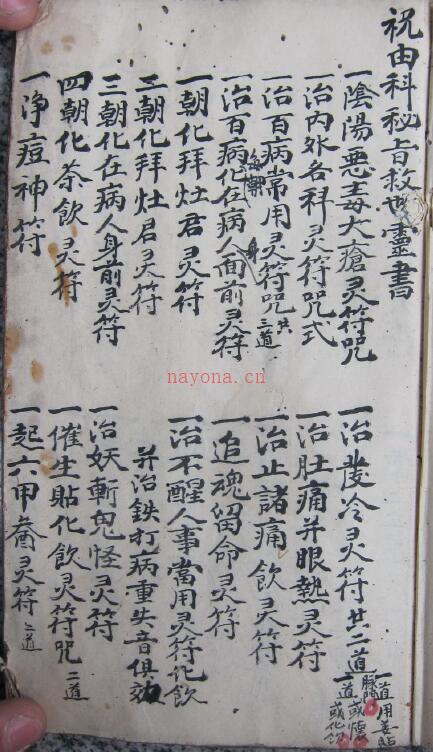 祝由科秘旨救世靈書
一陰陽惡毒大瘡灵符咒
一治內外各科灵符咒式
一治百病常用灵符咒共三道
一治百病化在病人面前灵符
一朝化拜灶君灵符
二朝化拜灶君灵符
三朝化在病人身前灵符
四朝化茶飲灵符
一淨痘神符
一治發冷灵符共二道
一道用姜貼
一道或燒
或化飲
一治肚痛并眼熱灵符
一治止諸痛飲灵符
一追魂留命灵符
一治不醒人事當用灵符化飲
并治鉄打病重失音俱效
一治妖斬鬼怪灵符
一催生貼化飲灵符咒二道
一起六甲灵符二道
nayona.cn